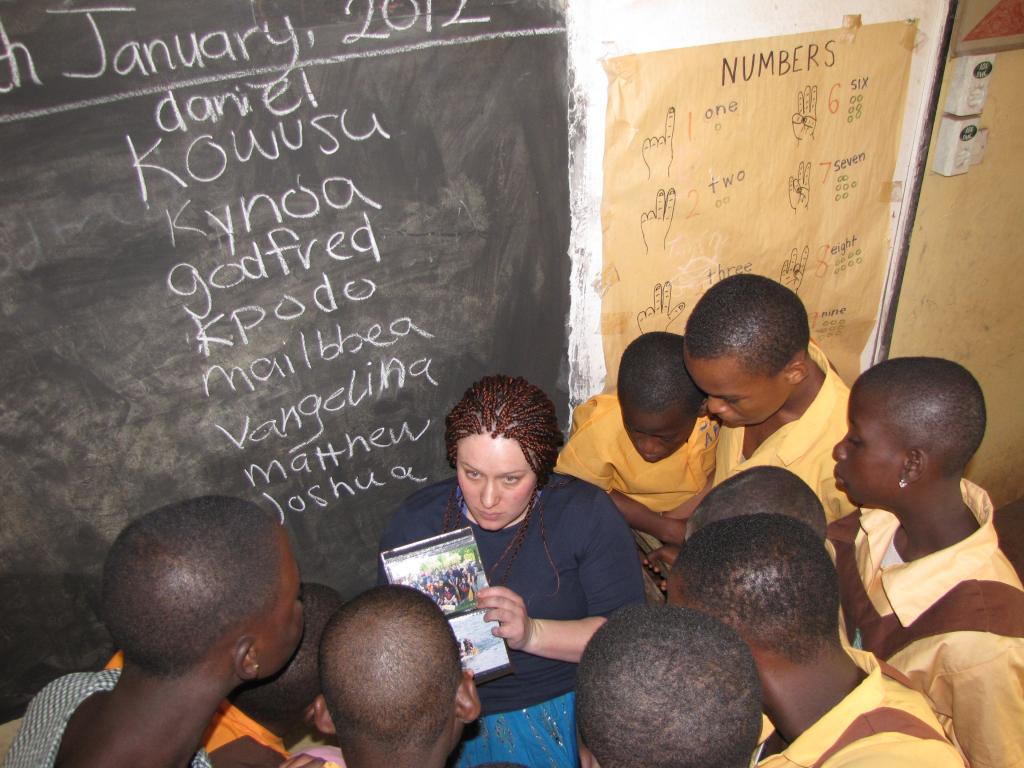 th January, 2012
daniel
Kowusu
Kynoa
godfred
Kpodo
mailbbea
Vangelina
matthew
Joshua
NUMBERS
1 one
2 two
three
6 six
7 seven
8 eight
nine